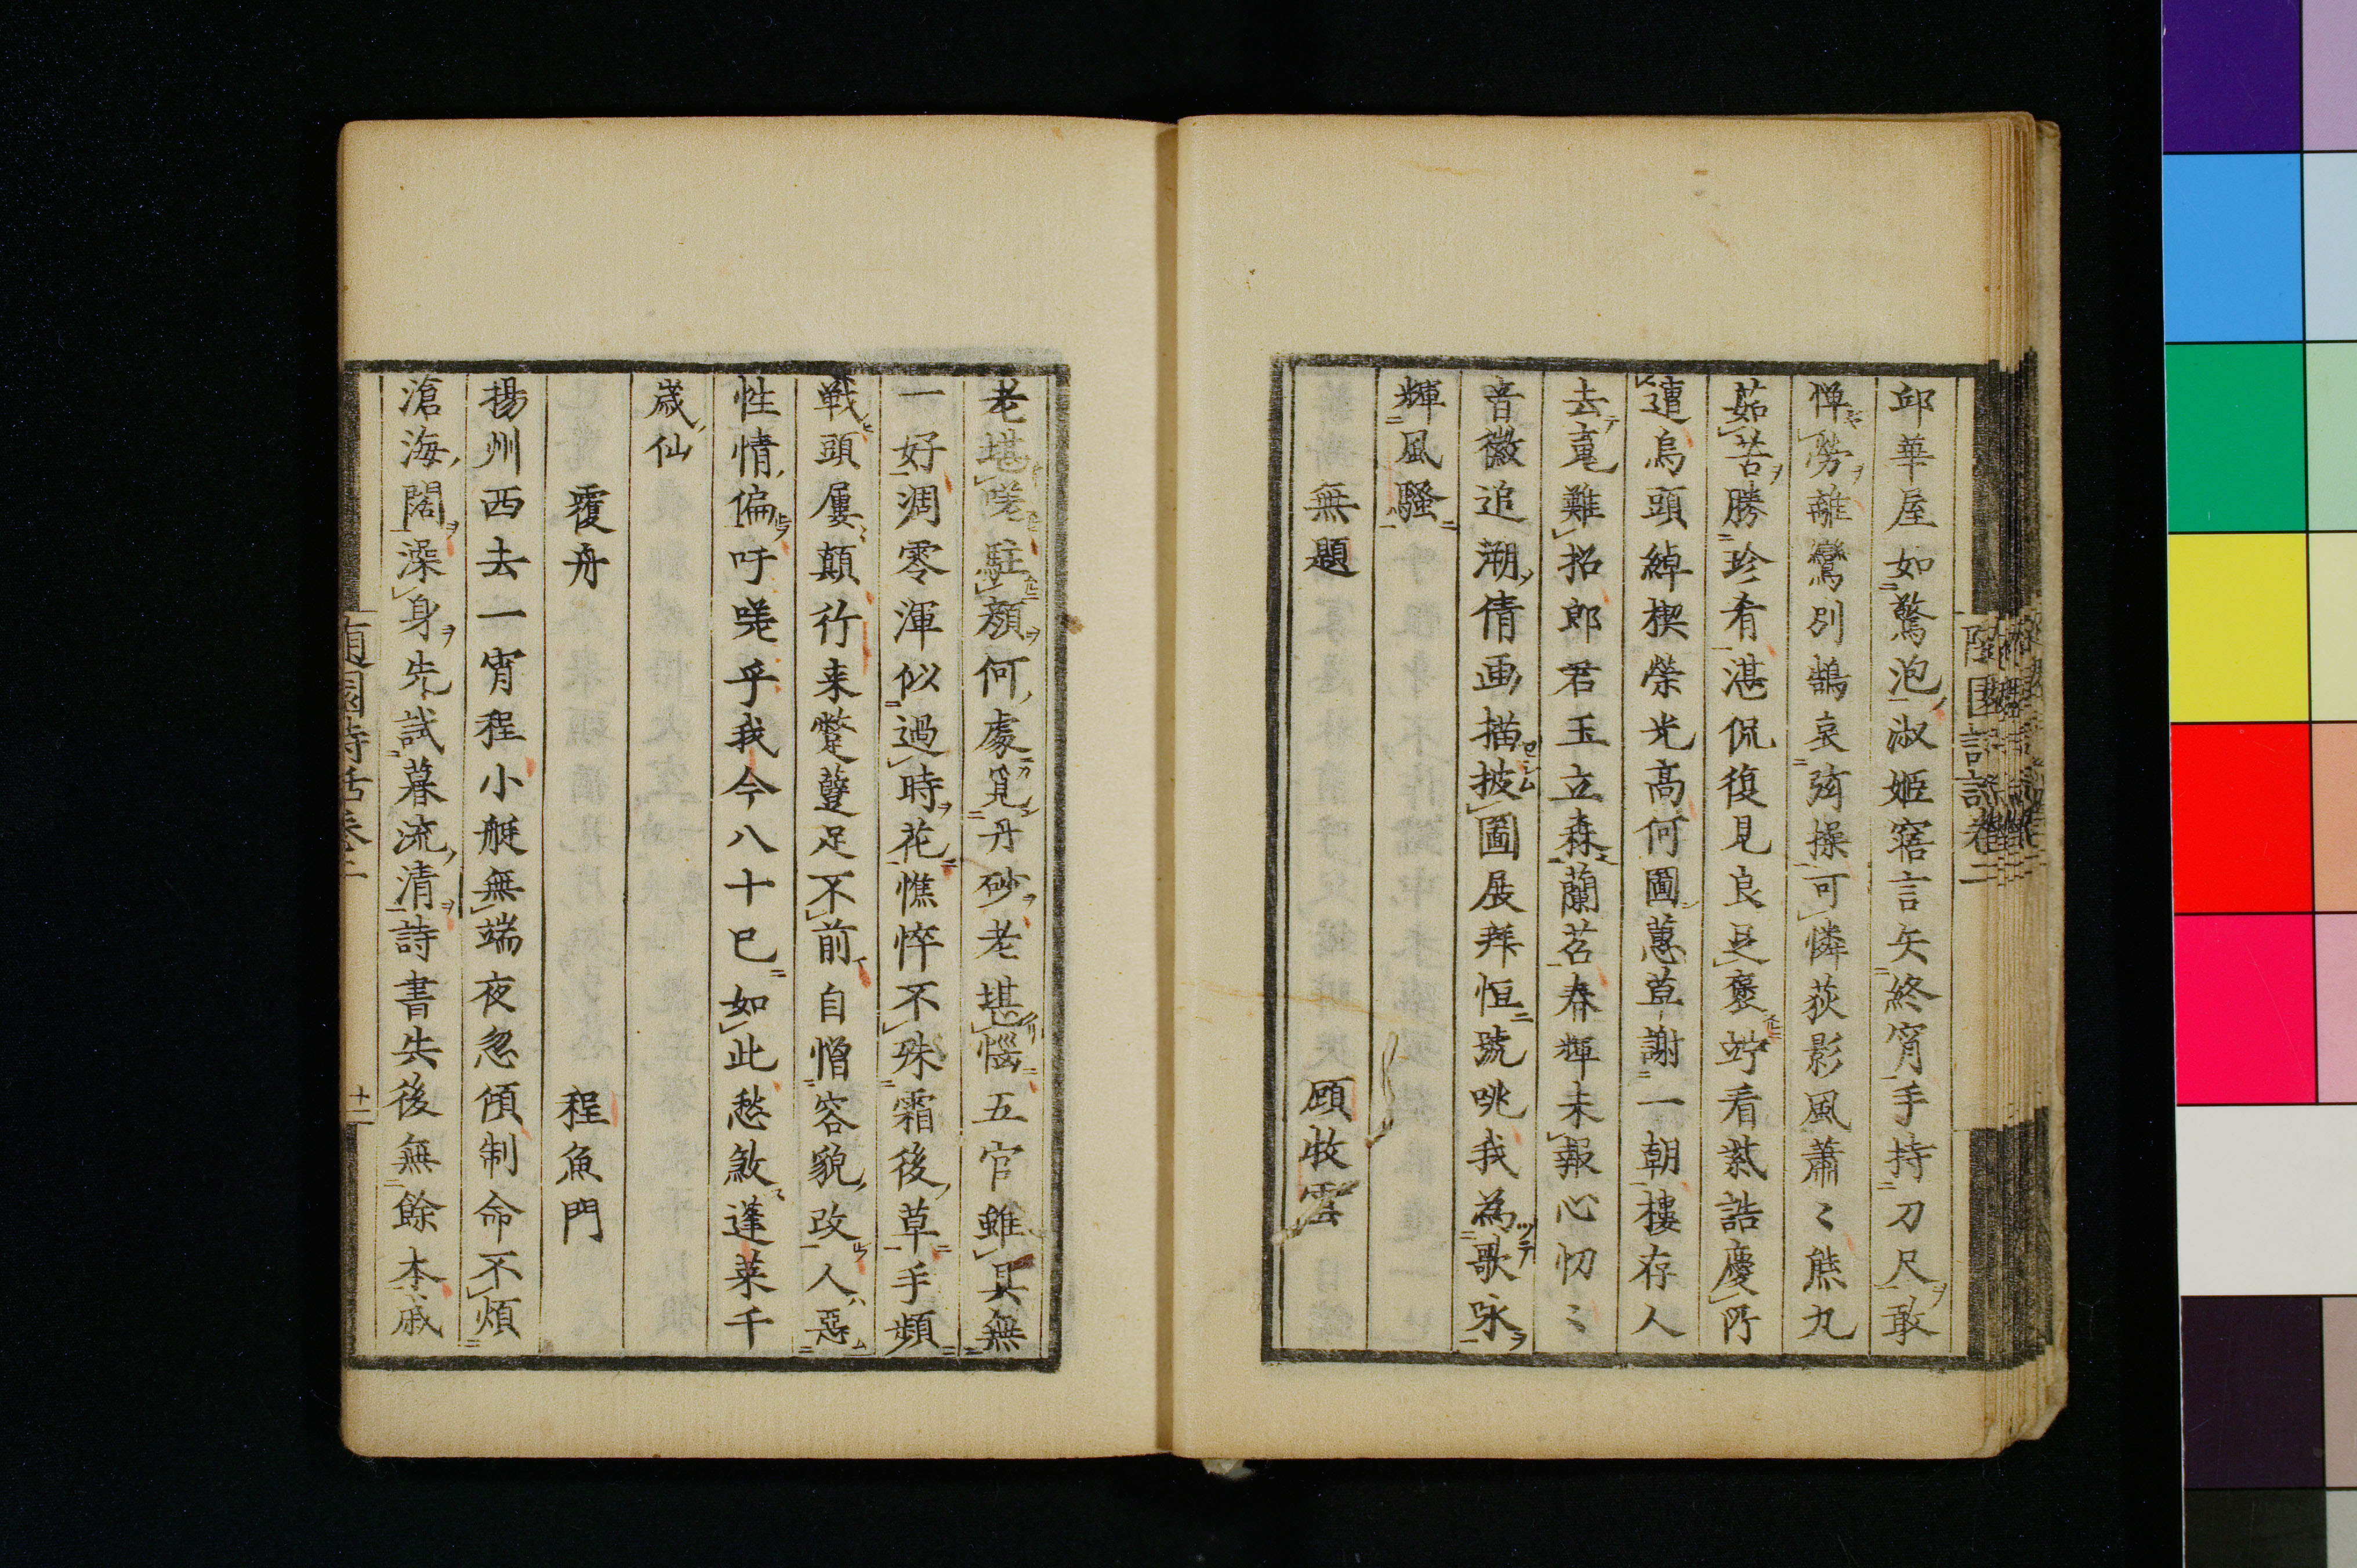 邱華屋如驚泡淑姬窰言矢終宵手持刀尺敢
憚勞離鸞別鵠哀弦操可憐荻影風蕭〻熊丸
茹苦勝珍肴湛侃復見良足褒竚看紫誥慶所
遭烏頭綽楔榮光高何圖蕙草謝一朝樓存人
去毫難招郎君玉立森蘭苕春輝未報心忉〻
音徽追溯倩画描披圖展拜恒號咷我為歌咏
輝風騷
無題 顧牧雲
老堪嗟駐顏何處覓丹砂老堪惱五官雖具無
一好凋零渾似過時花憔悴不殊霜後草手頻
戦頭屢顛行来蹩躠足不前自憎容貌改人惡
性情偏吁嗟乎我今八十已如此愁煞蓬萊千
歳仙
覆舟 程魚門
揚州西去一宵程小艇無端夜忽傾制命不煩
滄海闊澡身先試暮流清詩書失後無餘本戚
随園詩話巻二
十二